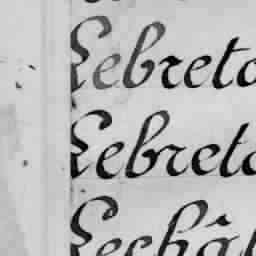 Lebreto
Lebreto
Lechât